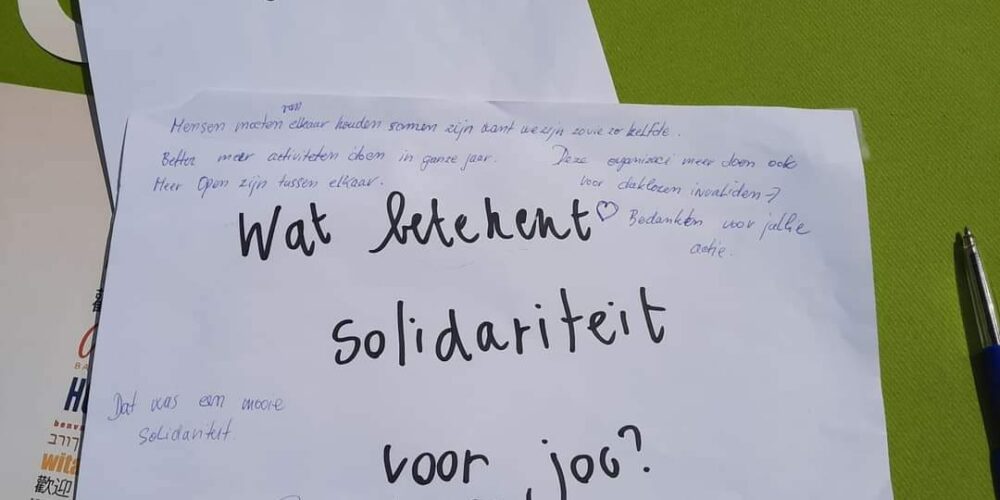 van
Mensen moeten elkaar houden samen zijn want we zijn zowie zo zelfde.
Better meer activiteten doen in ganze jaar.
Meer Open zijn tussen elkaar.
Deze organizaci meer doen ook
voor daklozen invaliden →
♡ Bedankten voor jullie
actie.
Wat betekent
solidariteit
voor jou?
Dat was een mooie
Solidariteit.
BA
benv
wita
歡迎